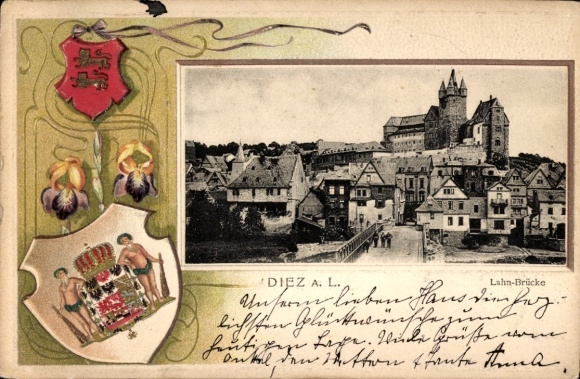 DIEZ A. L.
Lahn-Brücke
Unserm lieben Hans die herz-
lichsten Glückwünsche zum
heutigen Tage. Viele Grüße vom
Onkel, den Vettern & Tante Anna.